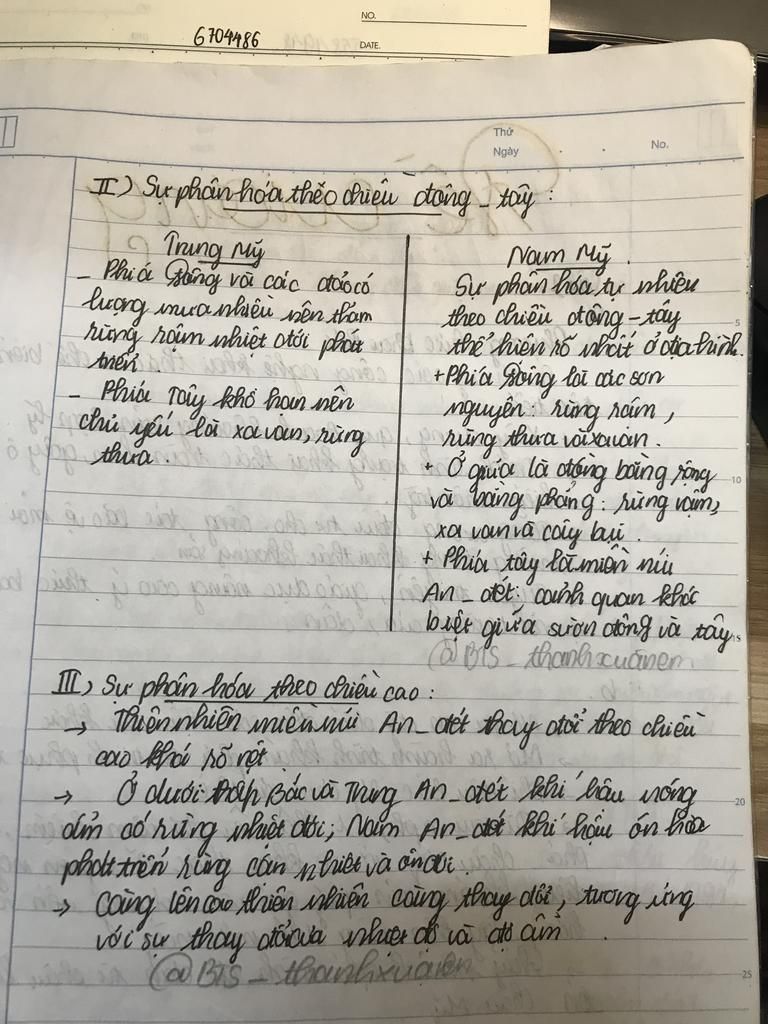 NO.
6704486
DATE.
Thứ
Ngày
No.
II) Sự phân hóa theo chiều đông - tây :
Trung Mỹ
- Phía Đông và các đảo có
lượng mưa nhiều nên thảm
rừng rậm nhiệt đới phát
triển.
- Phía Tây khô hạn nên
chủ yếu là xa van, rừng
thưa.
Nam Mỹ.
Sự phân hóa tự nhiên
theo chiều đông - tây
thể hiện rõ nhất ở địa hình.
+ Phía Đông là các sơn
nguyên: rừng rậm,
rừng thưa và xavan.
+ Ở giữa là đồng bằng rộng
và bằng phẳng: rừng rậm,
xa van và cây bụi.
+ Phía tây là miền núi
An_đét: cảnh quan khác
biệt giữa sườn đông và tây
@BTS_thanhxuânem
III) Sự phân hóa theo chiều cao :
→ Thiên nhiên miền núi An_đét thay đổi theo chiều
cao khá rõ rệt.
→ Ở dưới thấp Bắc và Trung An_đét khí hậu nóng
ẩm có rừng nhiệt đới; Nam An_đét khí hậu ôn hòa
phát triển rừng cận nhiệt và ôn đới.
→ Càng lên cao thiên nhiên càng thay đổi, tương ứng
với sự thay đổi của nhiệt độ và độ ẩm.
@BTS_thanhxuânem
5
10
15
20
25